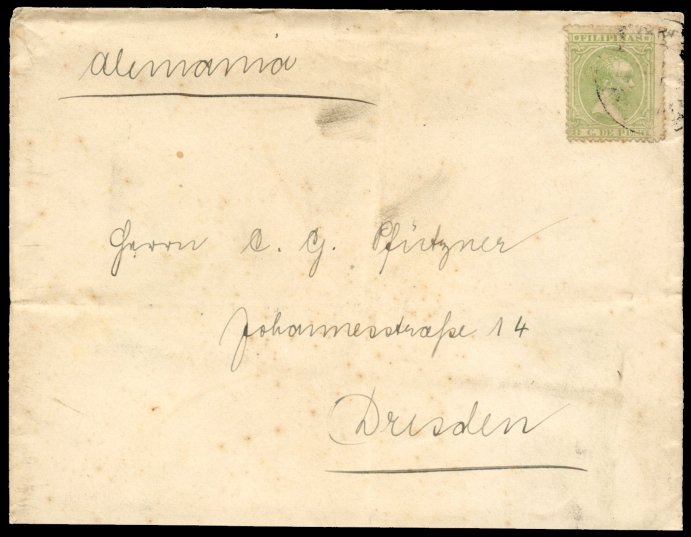 Alemania
FILIPINAS
8 C. DE PESO
Herrn C. G. Pfützner
Johannesstraße 14
Dresden